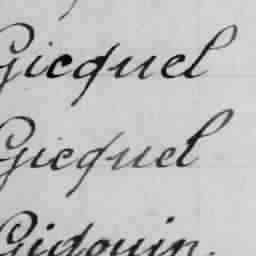 Gicquel
Gicquel
Gidouin.